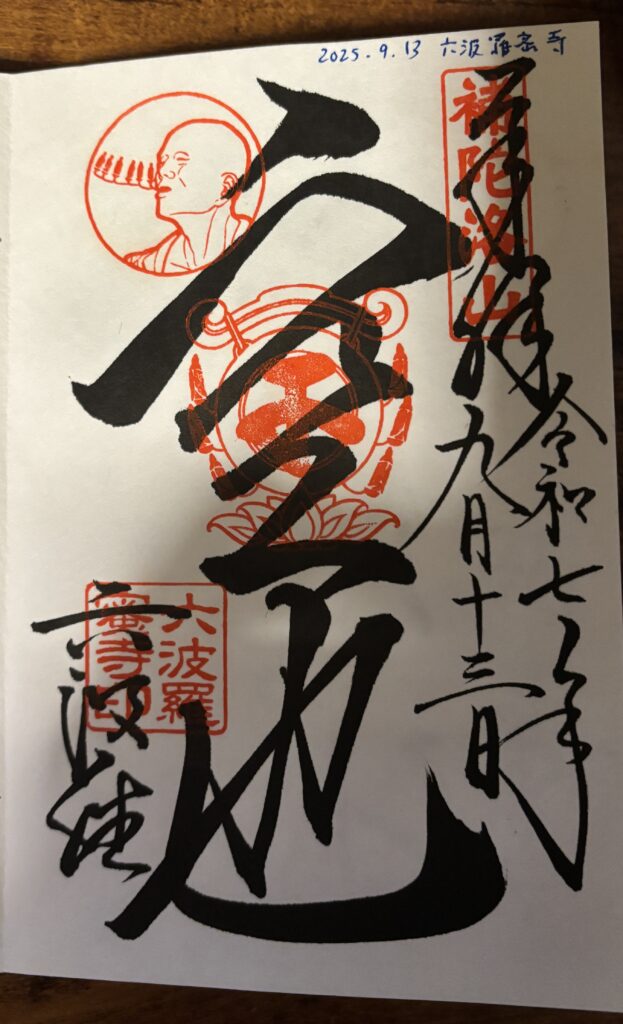 2025.9.13 六波羅蜜寺
補陀洛山
奉拝
令和七年
九月十三日
空也
六波羅
蜜寺印
六波